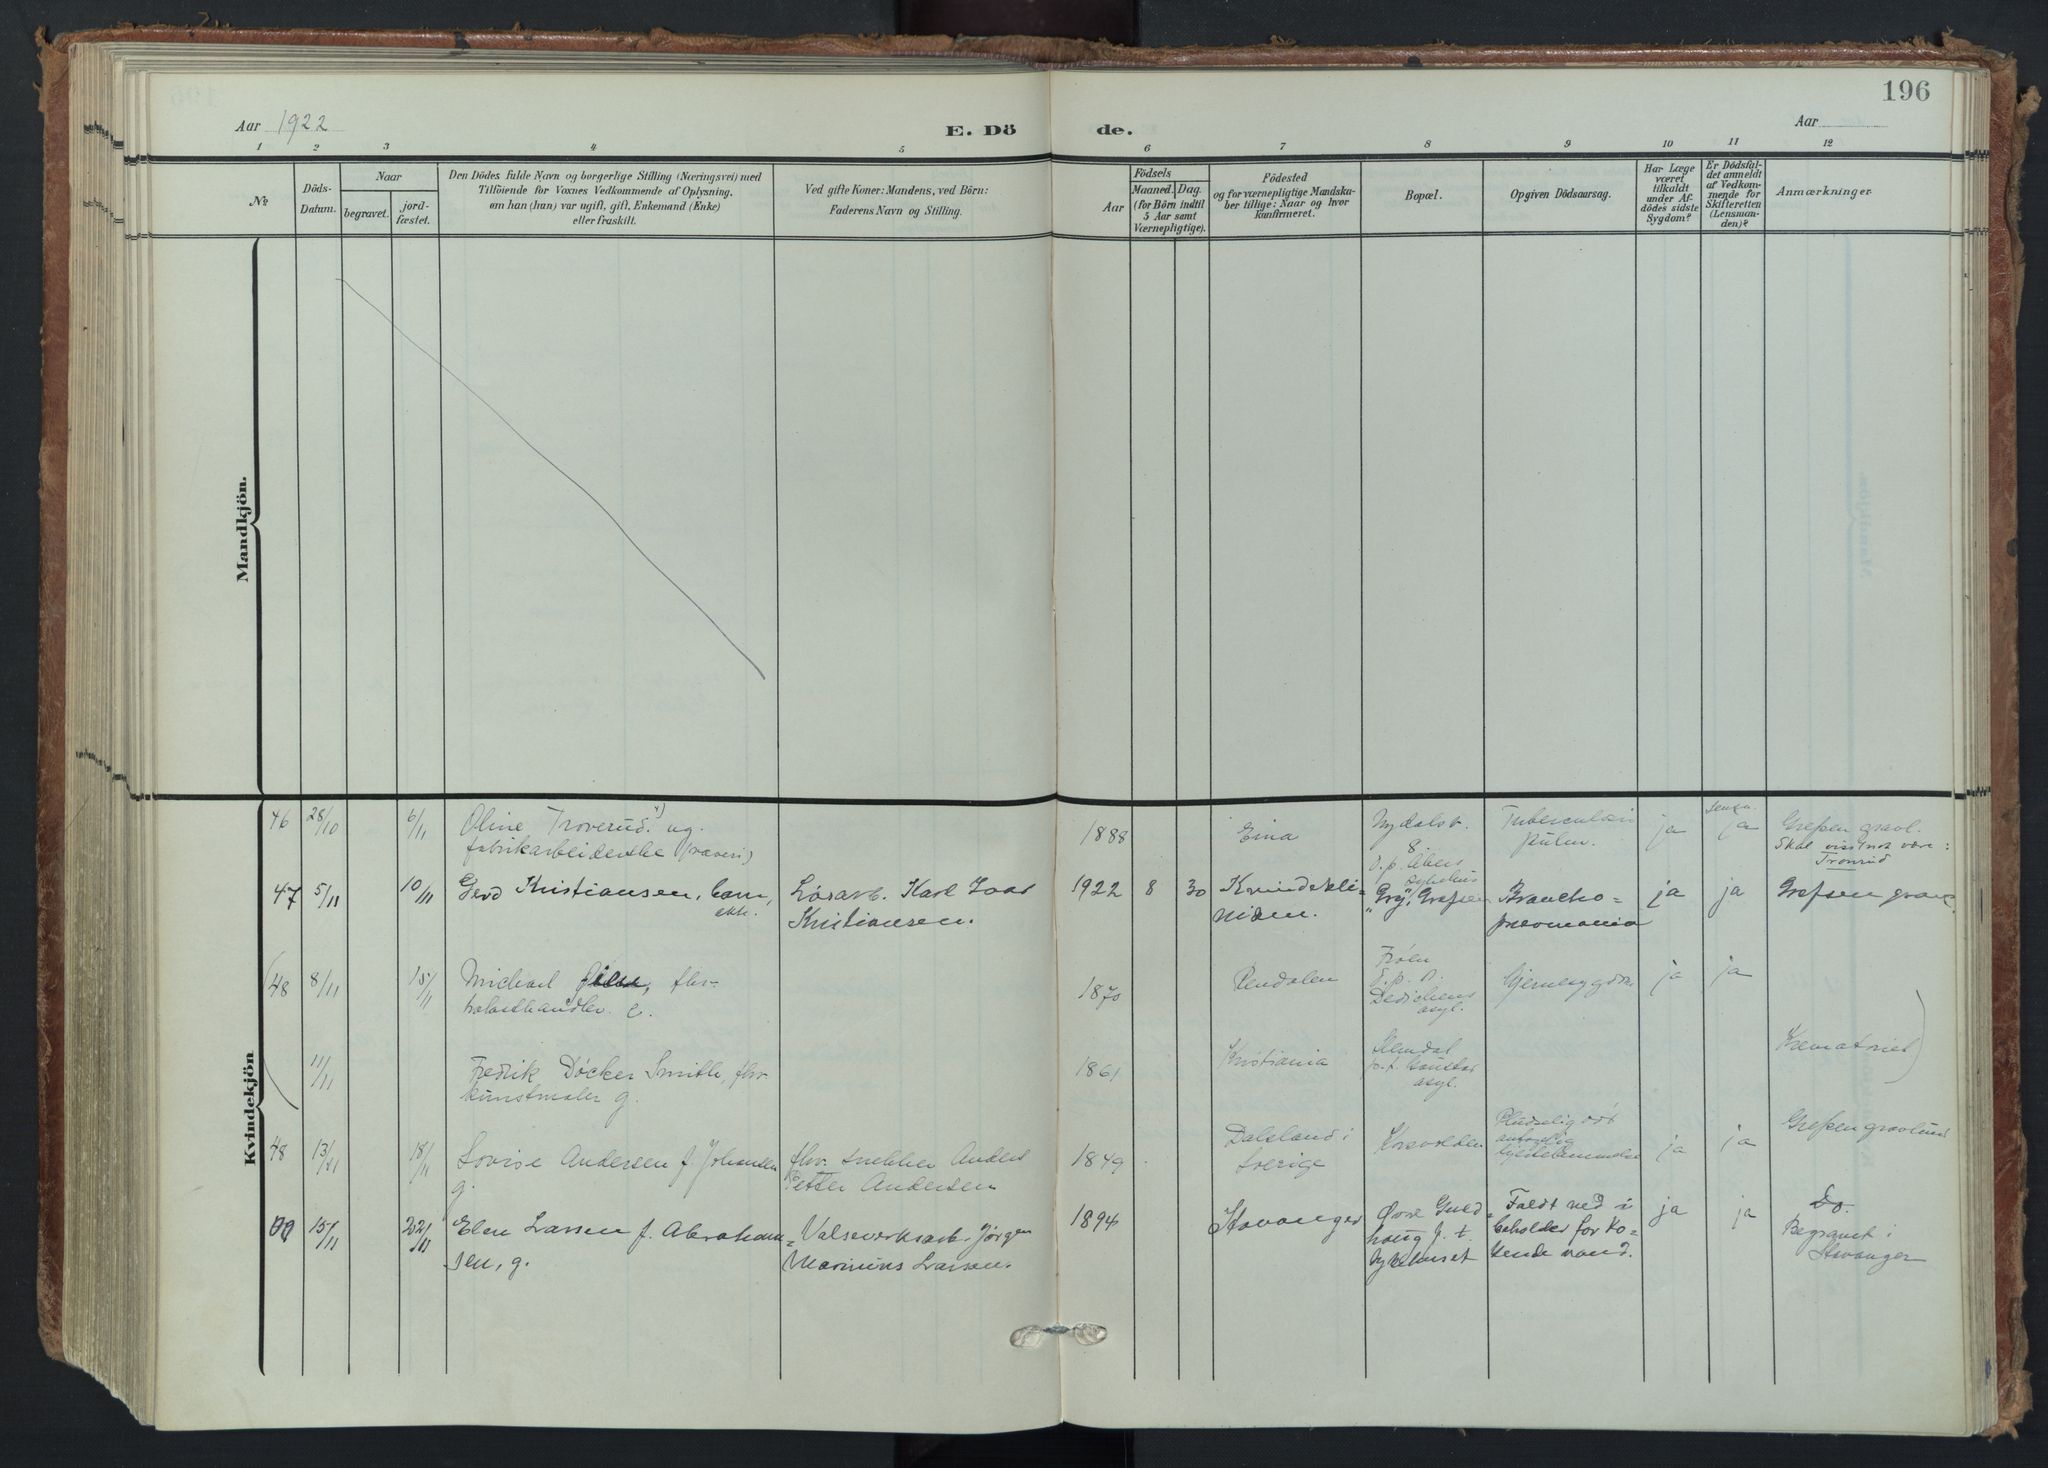 196
Aar 1922
E. Dö
de.
Aar
1 2 3 4 5 6 7 8 9 10 11 12
№
Döds-
Datum.
Naar
begravet.
jord-
fæstet.
Den Dödes fulde Navn og borgerlige Stilling (Næringsvei) med
Tilföiende for Voxnes Vedkommende af Oplysning,
om han (hun) var ugift, gift, Enkemand (Enke)
eller fraskilt.
Ved gifte Koner: Mandens, ved Börn:
Faderens Navn og Stilling.
Födsels
Aar
Maaned. Dag.
(for Börn indtil
5 Aar samt
Værnepligtige).
Födested
og for værnepligtige Mandsku-
ber tillige: Naar og hvor
Konfirmeret.
Bopæl.
Opgiven Dödsaarsag.
Har Læge
været
tilkaldt
under Af-
dödes sidste
Sygdom?
Er Dödsfal-
det anmeldt
af Vedkom-
mende for
Skifteretten
(Lensman-
den)?
Anmærkninger
Mandkjön.
Kvindekjön
46 28/10 6/11 Oline Troverud. ug.
fabrikarbeiderske (væveri)
1888 Eina Nydalsv.
8.
Tuberculosis
pulm.
ja ja Grefsen gravl.
Skal visstnok være:
Tronrud
47 5/11 10/11 Gerd Kristiansen, barn,
ekte.
Løsarb. Karl
Kristiansen.
1922 8 30 Kvindekli-
niken.
"Gry", Grefsen
Broncho-
pneomonia
ja ja Grefsen gravl.
(48 8/11 15/11 Michael
1870 Rendalen Frøen
Dedichens
asyl.
ja ja
11/11 Fredrik Döcker Smith, fhv.
kunstmaler g.
1861 Kristiania Slemdal
p.t. Gaustad
asyl.
Krematoriet)
48 13/11 18/11 Lovise Andersen f. Johansen
g.
fhv. snekker Anders
Petter Andersen
1849 Dalsland i
Sverige
Korsvolden
Pludselig død
antagelig
hjertelammelse
ja ja Grefsen gravlund
15/11 22/11 Elen Larsen f. Abraham-
sen, g.
Valseverksarb. Jørgen
Marinius Larsen.
1894 Stavanger Øvre Guld-
haug p. t.
sykehuset
Faldt ned i
beholder for ko-
kende vand.
ja ja Do.
Begravet i
Stavanger